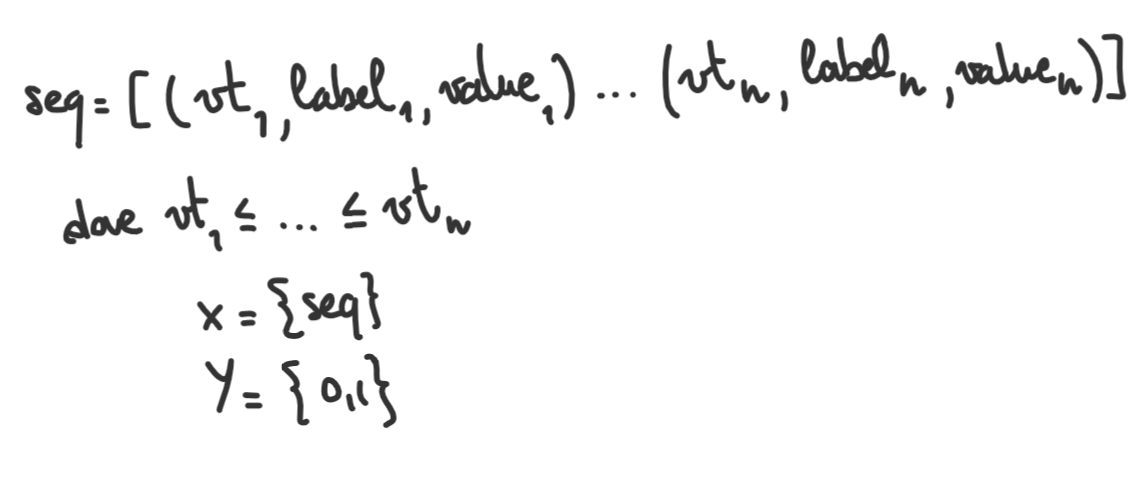 seq = [(vt₁, label₁, value₁) ... (vtₙ, labelₙ, valueₙ)]
dove vt₁ ≤ ... ≤ vtₙ
X = {seq}
Y = {0,1}